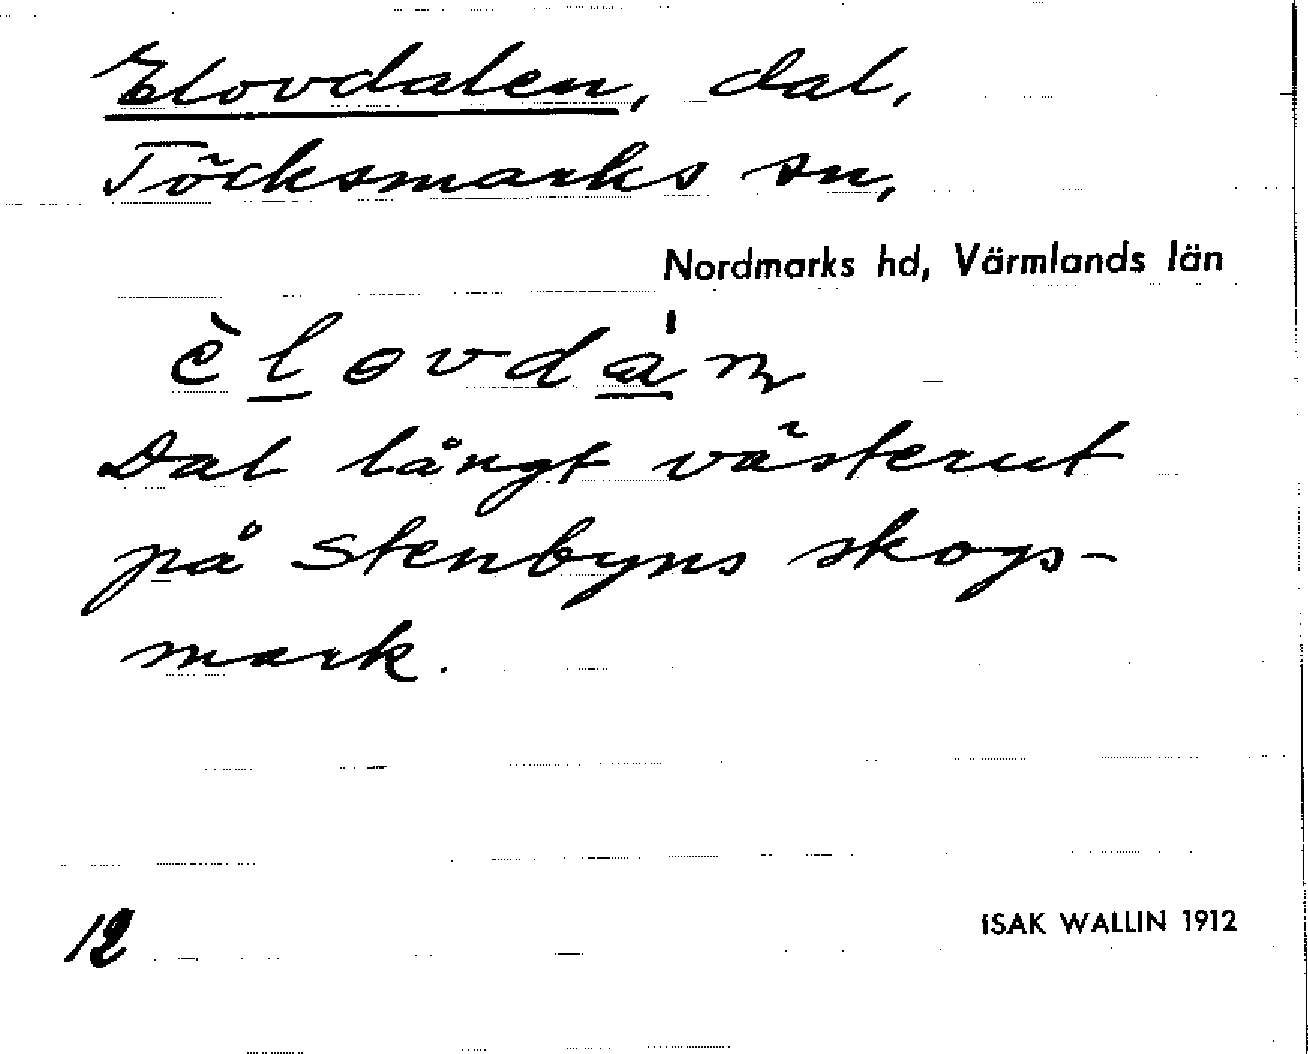 Elovdalen, dal,
Töcksmarks sn,
Nordmarks hd, Värmlands län
èlovdán
Dal långt västerut
på Stenbyns skogs-
mark.
12
ISAK WALLIN 1912